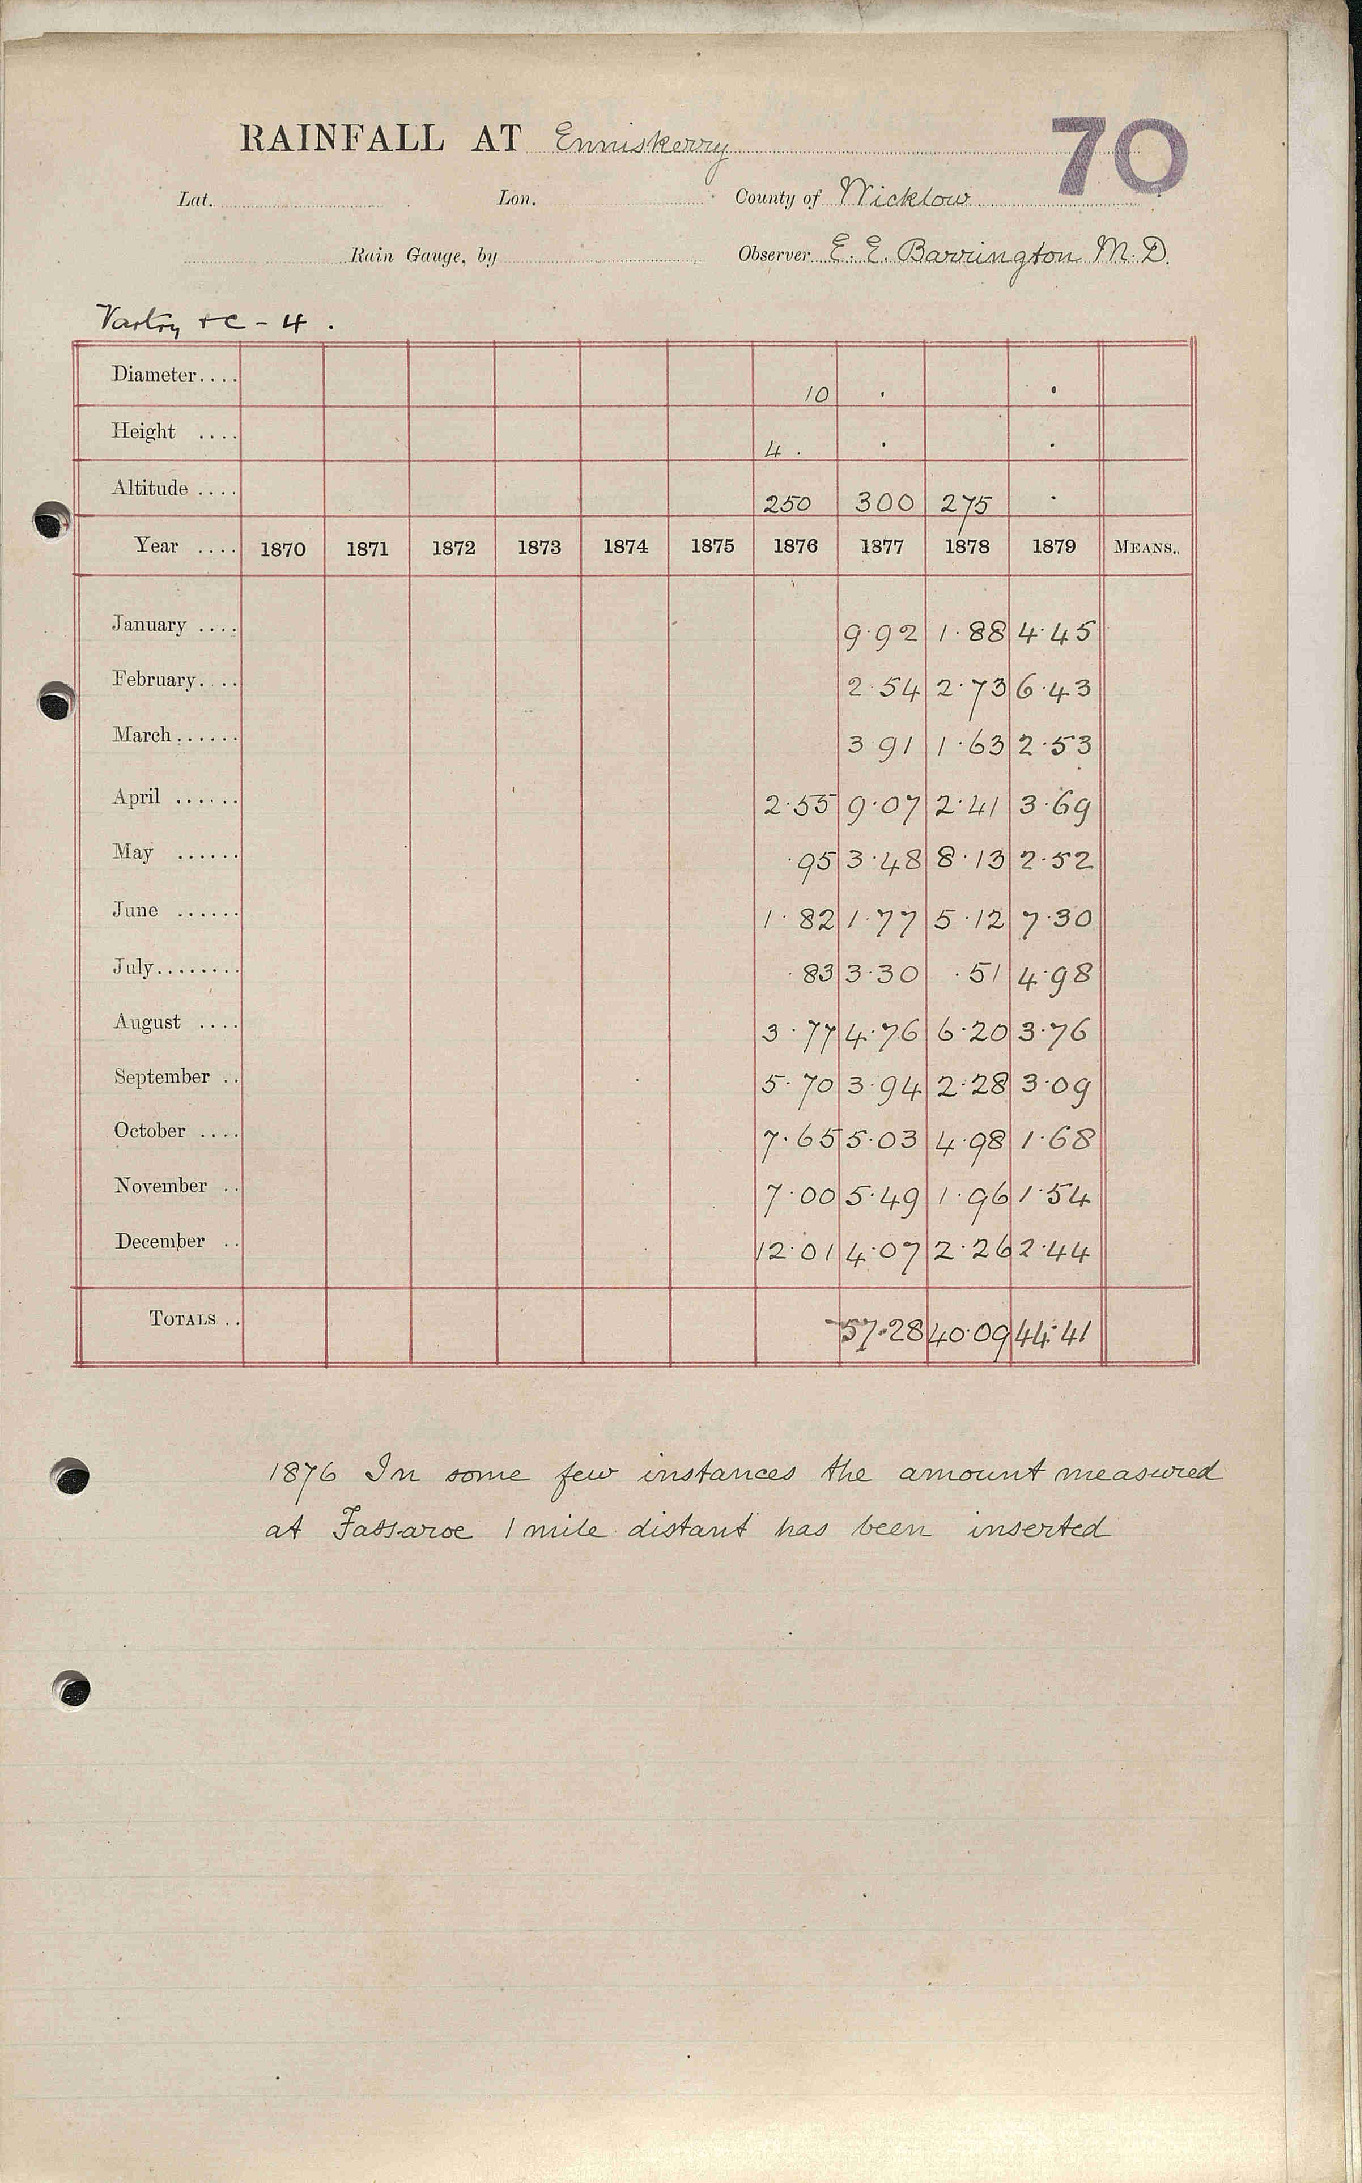 RAINFALL AT Enniskerry 70
Lat. Lon. County of Wicklow
Rain Gauge, by Observer E. E. Barrington M.D.
Vartry + C - 4 .
Diameter.... 10 . .
Height .... 4 . . .
Altitude .... 250 300 275 .
Year .... 1870 1871 1872 1873 1874 1875 1876 1877 1878 1879 MEANS..
January .... 9.92 1.88 4.45
February.... 2.54 2.73 6.43
March...... 3 91 1.63 2.53
April ...... 2.55 9.07 2.41 3.69
May ...... .95 3.48 8.13 2.52
June ...... 1.82 1.77 5.12 7.30
July........ .83 3.30 .51 4.98
August .... 3.77 4.76 6.20 3.76
September .. 5.70 3.94 2.28 3.09
October .... 7.65 5.03 4.98 1.68
November .. 7.00 5.49 1.96 1.54
December .. 12.01 4.07 2.26 2.44
TOTALS .. 57.28 40.09 44.41
1876 In some few instances the amount measured
at Fassaroe 1 mile distant has been inserted